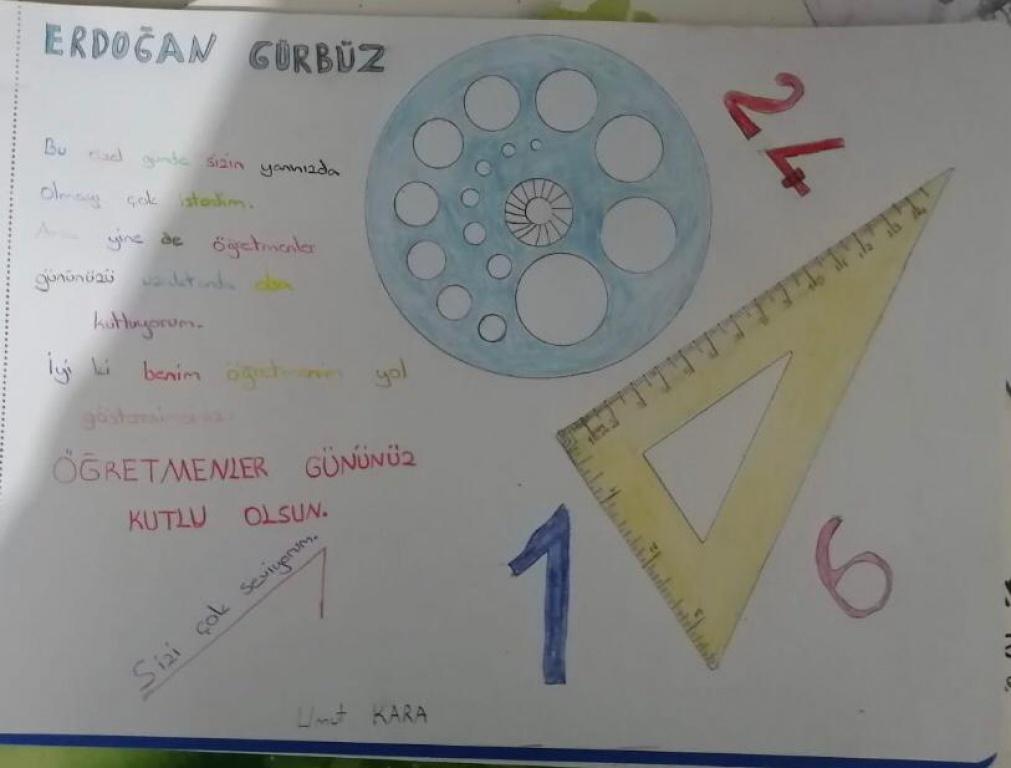 ERDOĞAN GÜRBÜZ
Bu özel günde sizin yanınızda
olmayı çok istedim.
Ama yine de öğretmenler
gününüzü uzaktanda olsa
kutluyorum.
İyi ki benim öğretmenim yol
göstericimsiniz.
ÖĞRETMENLER GÜNÜNÜZ
KUTLU OLSUN.
Sizi çok seviyorum.
Umut KARA
24
1
6